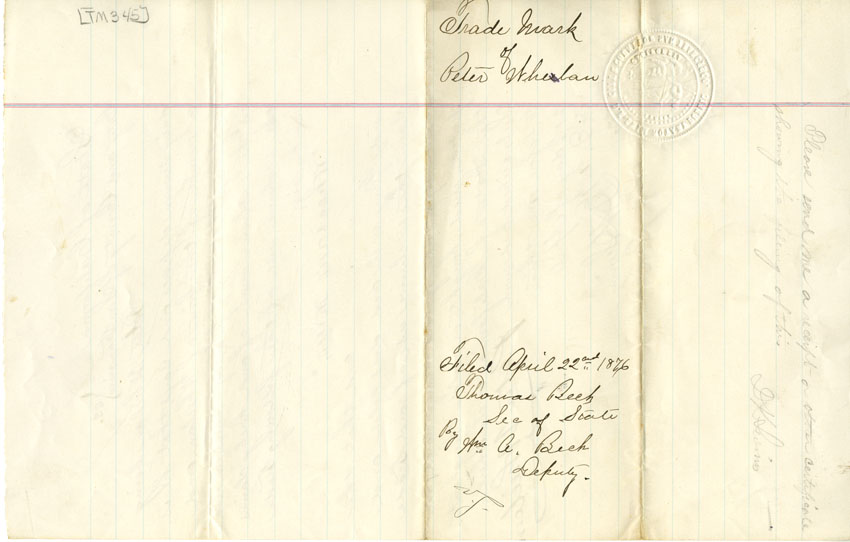 [TM345]
Trade Mark
of
Peter Whelan
Filed April 22nd 1876
Thomas Beck
Sec of State
By Wm A. Beck
Deputy.
Please send me a receipt or certificate
showing the filing of this